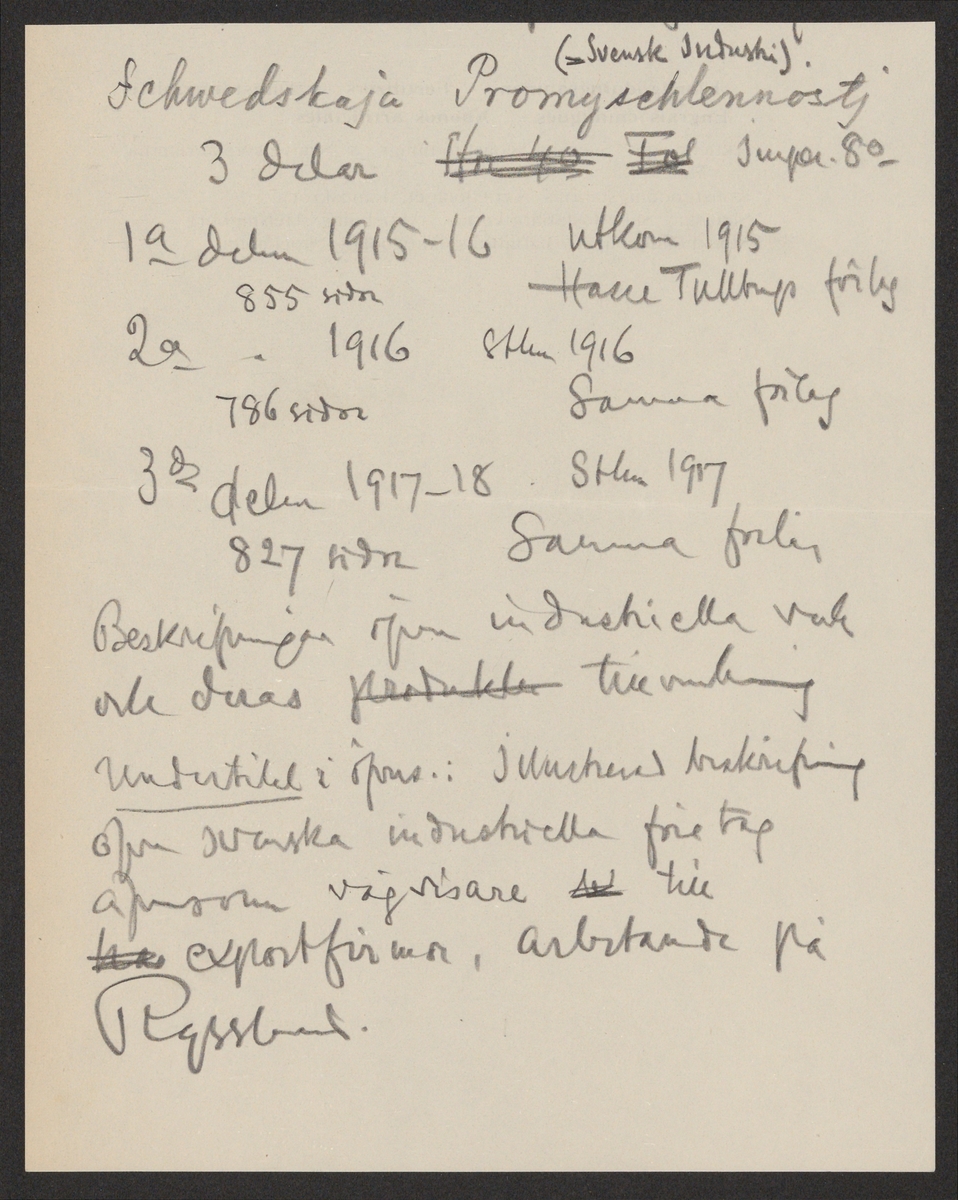 (= Svensk Industri).
Schwedskaja Promyschlennostj
3 delar Imper. 8o
1a delen 1915-16 utkom 1915
855 sidor Hasse Tullbergs förlag
2a " 1916 Sthlm 1916
786 sidor Samma förlag
3de delen 1917-18 Sthlm 1917
827 sidor Samma förlag
Beskrifningar öfver industriella verk
och deras produkter tillverkning
Undertitel i öfvers.: Illustrerad beskrifning
öfver svenska industriella företag
äfvensom vägvisare till
exportfirmor, arbetande på
Ryssland.